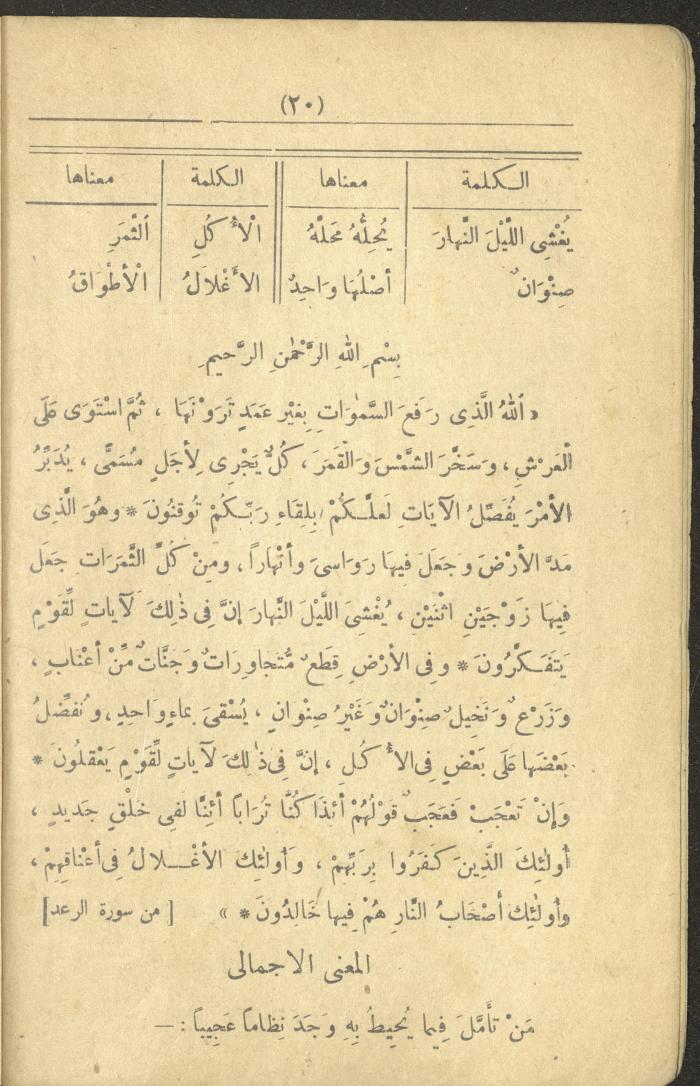 (٢٠)
الكلمة معناها الكلمة معناها
يُغْشِى اللَّيْلَ النَّهارَ يُحِلُّهُ مَحَلَّهُ الْأُكُلِ الثَّمَرِ
صِنْوَانٌ أصْلُهَا وَاحِدٌ الأَغْلَالُ الْأطْوَاقُ
بِسْمِ اللهِ الرَّحْمٰنِ الرَّحِيمِ
« اَللهُ الَّذِى رَفَعَ السَّمٰوَاتِ بِغَيْرِ عَمَدٍ تَرَوْنَهَا ، ثُمَّ اسْتَوَى عَلَى
الْعَرْشِ ، وَسَخَّرَ الشَّمْسَ وَالْقَمَرَ ، كُلٌّ يَجْرِى لِأَجَلٍ مُسَمًّى ، يُدَبِّرُ
الأمْرَ يُفَصِّلُ الآيَاتِ لَعلَّكُمْ بِلِقَاءِ رَبِّكُمْ تُوقنُونَ * وهُوَ الَّذِى
مَدَّ الأرْضَ وَجَعَلَ فيهَا رَوَاسىَ وأَنْهاراً ، ومِنْ كُلِّ الثَّمَرَات جَعَلَ
فِيهَا زَوْجَيْنِ اثْنَيْنِ ، يُغْشِىَ اللَّيْلَ النَّهارَ إنَّ فِى ذٰلِكَ لَآياتٍ لِّقَوْمٍ
يَتَفَكَّرُونَ * وفِى الأرْضِ قِطَعٌ مُّتَجاوِرَاتٌ وَجَنَّاتٌ مِّنْ أعْنَابٍ ،
وَزَرْعٌ وَنَخِيلٌ صِنْوَانٌ وَغَيْرُ صِنْوانٍ ، يُسْقىَ بماءٍ وَاحدٍ ، وَنُفضِّلُ
بَعْضَها عَلَى بَعْضٍ فِى الأُكُلِ ، إنَّ فِى ذٰلكَ لَآياتٍ لِّقَوْمٍ يَعْقلُونَ *
وَإنْ تَعْجَبْ فَعَجَبٌ قَوْلُهُمْ أئذَا كُنَّا تُرَاباً أئِنَّا لفى خَلْقٍ جَديدٍ ،
أُولٰئِكَ الَّذِينَ كَفَرُوا بِرَبِّهِمْ ، وَأُولٰئِكَ الأغْلَالُ فِى أعْناقِهِمْ ،
وأُولٰئِكَ أَصْحَابُ النَّارِ هُمْ فِيها خَالِدُونَ * » [ من سورة الرعد ]
المعنى الاجمالى
مَنْ تأَمَّلَ فِيما يُحِيطُ بِهِ وَجَدَ نِظاماً عَجِيباً : —